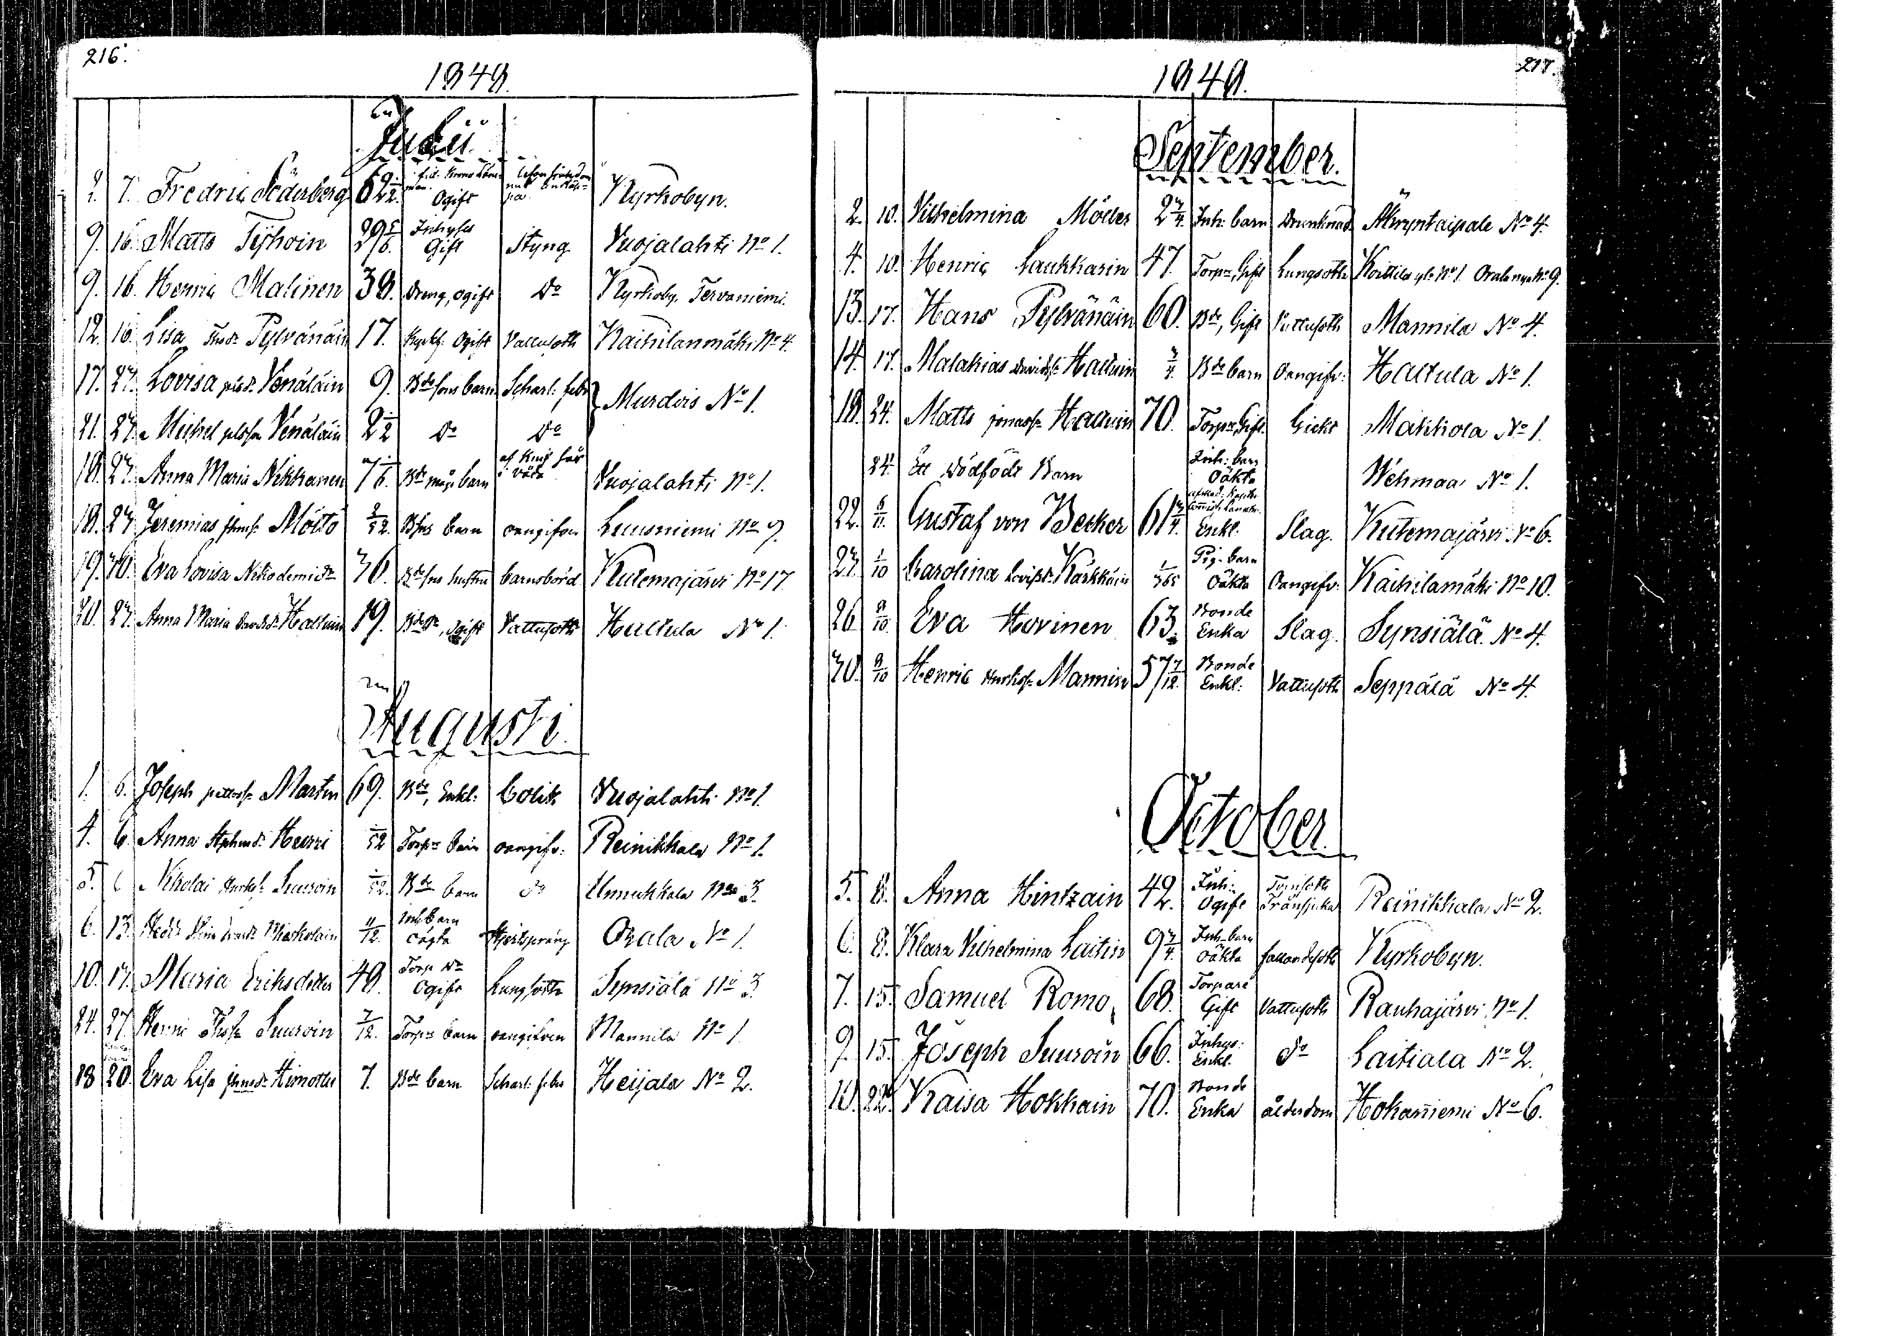 216.
1848.
Julii
2. 7. Fredric Söderberg 62 1/2. Ogift Kyrkobyn.
9. 16. Matts Tyhvin 29 5/6. Inhyses Gift Styng Vuojalahti No 1.
9. 16. Henric Malinen 38. Dreng, ogift Do Kyrkoby. Tervaniemi.
12. 16. Lisa Pylvänäin 17. Ogift Vattusoth Kaihilanmäki No 4.
17. 27. Lovisa Venäläin 9. Bde sons barn Scharl: febr Murdois No 1.
21. 27. Michel Venäläin 2 1/2 Do Do
18. 27. Anna Maria Nikkanen 7/6. Bde måg: barn Vuojalahti No 1.
18. 27. Jeremias Möttö 2/52 barn oangifven Luusniemi No 9.
19. Eva Lovisa Nikodemidr 36. Bde sons hustru barnsbörd Kutemajärvi No 17
30. 27. Anna Maria Halluin 19. Ogift Vattusoth Haltula No 1.
Augusti.
1. 6. Joseph Martin 69. Bde, Enkl: Colik Vuojalahti No 1.
4. 6. Anna Heinri 1/52 Torpre barn oangifv: Reinikkala No 1.
5. 6. Nikolai Suuroin 1/52. Bde barn Do Unnukkala No 3.
6. 13. 11/12. Inh barn oägta Orala No 1.
10. 17. Maria Eriksdotter 48. Torp Dr Ogift Lungsothe Synsiälä No 3.
24. 27. Henric Suuroin 7/12. Torpre barn oangifven Mannila No 1.
18 20. Eva Lisa Himottu 7. Bde barn Scharl: febr Heijala No 2.
217.
1848.
September.
2. 10. Vilhelmina Möller 2 3/4. Inh: barn Drunknad. Äkryntaipale No 4.
4. 10. Henric Laukkarin 47. Torpre, Gift Lungsoth No 9.
13. 17. Hans Pylvänäin 60. Bde, Gift Vattusoth Mannila No 4.
14. 17. Malakias Davidss: Halluin 3/4. Bde barn Oangifv: Haltula No 1.
18. 24. Matts Jonass: Halluin 70. Torpre, Gift. Gickt Makkola No 1.
24. Ett Dödfödt Barn Inh: barn Oäkta Wehmaa No 1.
22. 5/11. Gustaf von Becker 61 3/4. Enkl. Slag. Kutemajärvi No 6.
27. 1/10 Carolina Kärkkäin 1/365 Pig: barn Oäkta Oangifv: Kaihilamäki No 10.
26. 8/10. Eva Hovinen 63. Bonde Enka Slag. Synsiälä No 4.
30. 8/10 Henric Mannin 57 7/12. Bonde Enkl: Vattusoth Seppälä No 4.
October.
5. 8. Anna Hintzain 42. Inh: Ogift Reinikkala No 2.
6. 8. Klara Vilhelmina Laitin 9 3/4. Inh: barn Oäkta fallandesoth Kyrkobyn.
7. 15. Samuel Romo, 68. Torpare Gift Vattusoth Rauhajärvi No 1.
9. 15. Joseph Suuroin 66. Inhys: Enkl. Do Laitiala No 2.
10. 22. Kaisa Hokkain 70. Bonde Enka ålderdom Hokaniemi No 6.